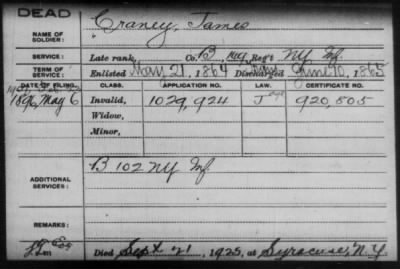 DEAD
NAME OF SOLDIER: Craney, James
SERVICE: Late rank, Co. B, Reg't NY Inf.
TERM OF SERVICE: Enlisted May 21, 1864 Discharged June 10, 1865
DATE OF FILING. CLASS. APPLICATION NO. LAW. CERTIFICATE NO.
1896, May 6 Invalid, 1029,924 J 920,505
Widow,
Minor,
ADDITIONAL SERVICES: B 102 NY Inf
REMARKS:
Died Sept 21, 1925, at Syracuse, N.Y.